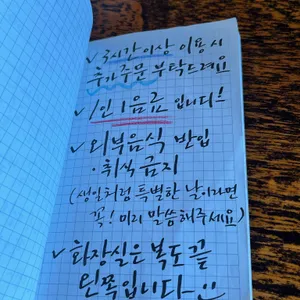 ✓ 3시간 이상 이용 시
추가 주문 부탁드려요
✓ 1인 1음료 입니다!
✓ 외부음식 반입
· 취식 금지
(생일처럼 특별한 날이라면
꼭! 미리 말씀해주세요)
✓ 화장실은 복도 끝
왼쪽입니다~ :)